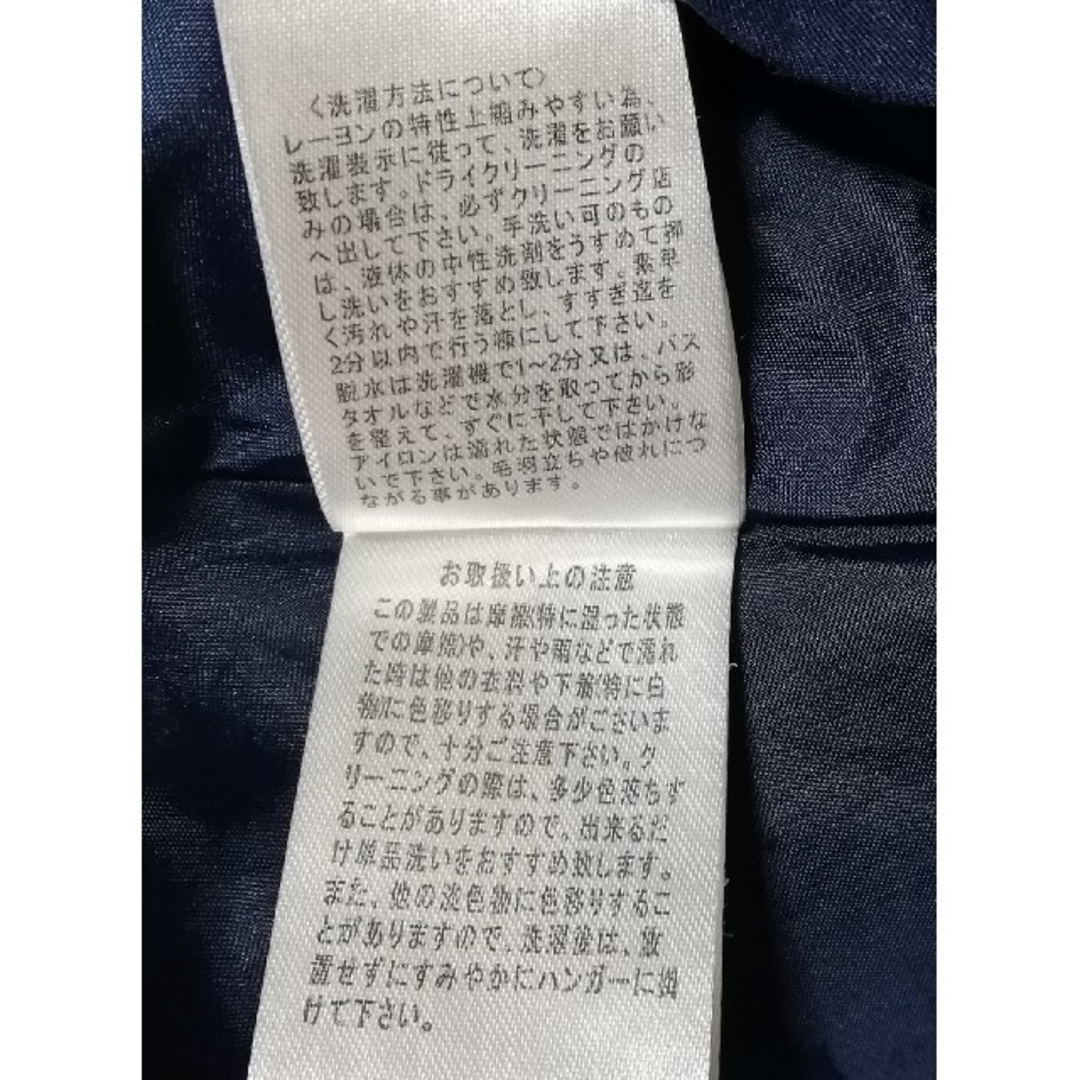 〈洗濯方法について〉
レーヨンの特性上縮みやすい為、
洗濯表示に従って、洗濯をお願い
致します。ドライクリーニングの
みの場合は、必ずクリーニング店
へ出して下さい。手洗い可のもの
は、液体の中性洗剤をうすめて押
し洗いをおすすめ致します。素早
く汚れや汗を落とし、すすぎ迄を
2分以内で行う様にして下さい。
脱水は洗濯機で1~2分又は、バス
タオルなどで水分を取ってから形
を整えて、すぐに干して下さい。
アイロンは濡れた状態ではかけな
いで下さい。毛羽立ちや他れにつ
ながる事があります。
お取扱い上の注意
この製品は摩擦(特に湿った状態
での摩擦)や、汗や雨などで濡れ
た時は他の衣料や下着(特に白
物)に色移りする場合がございま
すので、十分ご注意下さい。ク
リーニングの際は、多少色落ちす
ることがありますので、出来るだ
け単品洗いをおすすめ致します。
また、他の淡色物に色移りするこ
とがありますので、洗濯後は、放
置せずにすみやかにハンガーに掛
けて下さい。